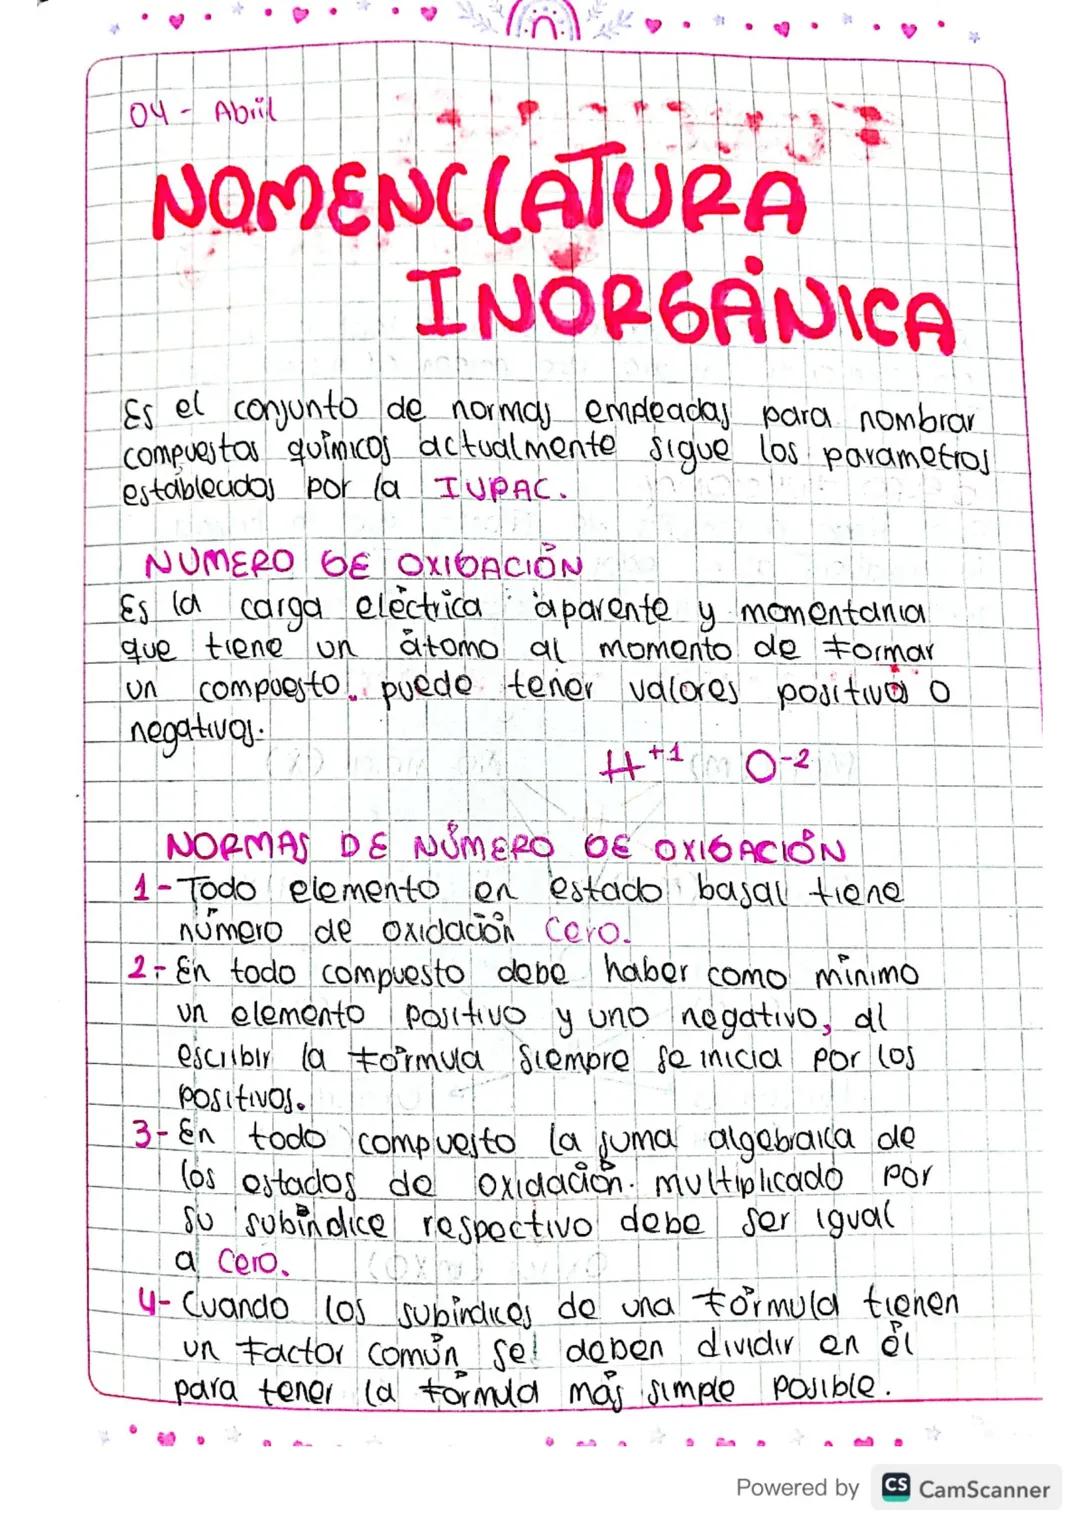 04 - Abril
NOMENCLATURA
INORGÁNICA
Es el conjunto de normas empleadas para nombrar
compuestos químicos actualmente sigue los parametros
establecidos por la IUPAC.
NUMERO DE OXIDACIÓN
Es la carga eléctrica aparente y momentania
que tiene un átomo al momento de formar
un compuesto. puede tener valores positivos o
negativos.
H+1 O-2
NORMAS DE NÚMERO DE OXIDACIÓN
1- Todo elemento en estado basal tiene
número de oxidación Cero.
2- En todo compuesto debe haber como mínimo
un elemento positivo y uno negativo, al
escribir la fórmula siempre se inicia por los
positivos.
3- En todo compuesto la suma algebraica de
los estados de oxidación. multiplicado por
su subíndice respectivo debe ser igual
a Cero.
4- Cuando los subíndices de una fórmula tienen
un factor común se deben dividir en él
para tener la fórmula más simple posible.
Powered by CS CamScanner